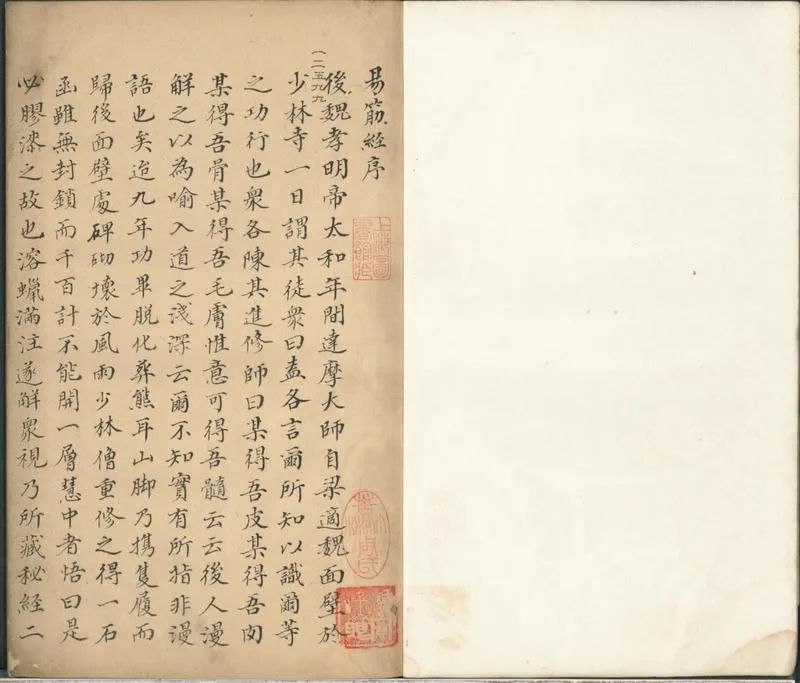 易筋經序
一二五九九
後魏孝明帝太和年間達摩大師自梁適魏面壁於
少林寺一日謂其徒衆曰盍各言爾所知以識爾等
之功行也衆各陳其進修師曰某得吾皮某得吾肉
某得吾骨某得吾毛膚惟意可得吾髓云云後人漫
解之以為喻入道之淺深云爾不知實有所指非漫
語也矣迨九年功畢脫化葬熊耳山脚乃携隻履而
歸後面壁處碑砌壞於風雨少林僧重修之得一石
函雖無封鎖而千百計不能開一層慧中者悟曰是
必膠漆之故也溶蠟滿注遂解衆視乃所藏秘經二
上海圖
書館藏